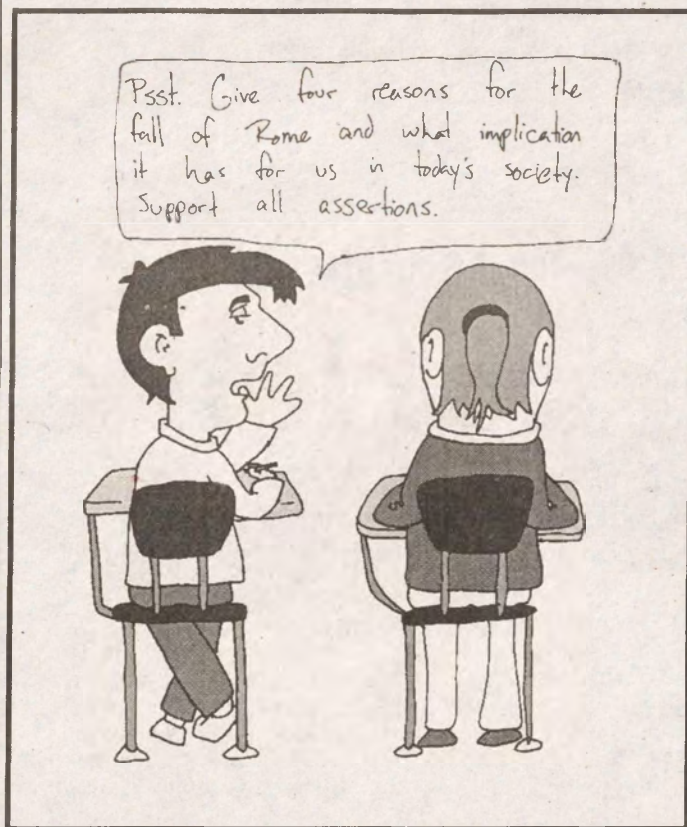 Psst. Give four reasons for the
fall of Rome and what implication
it has for us in today's society.
Support all assertions.